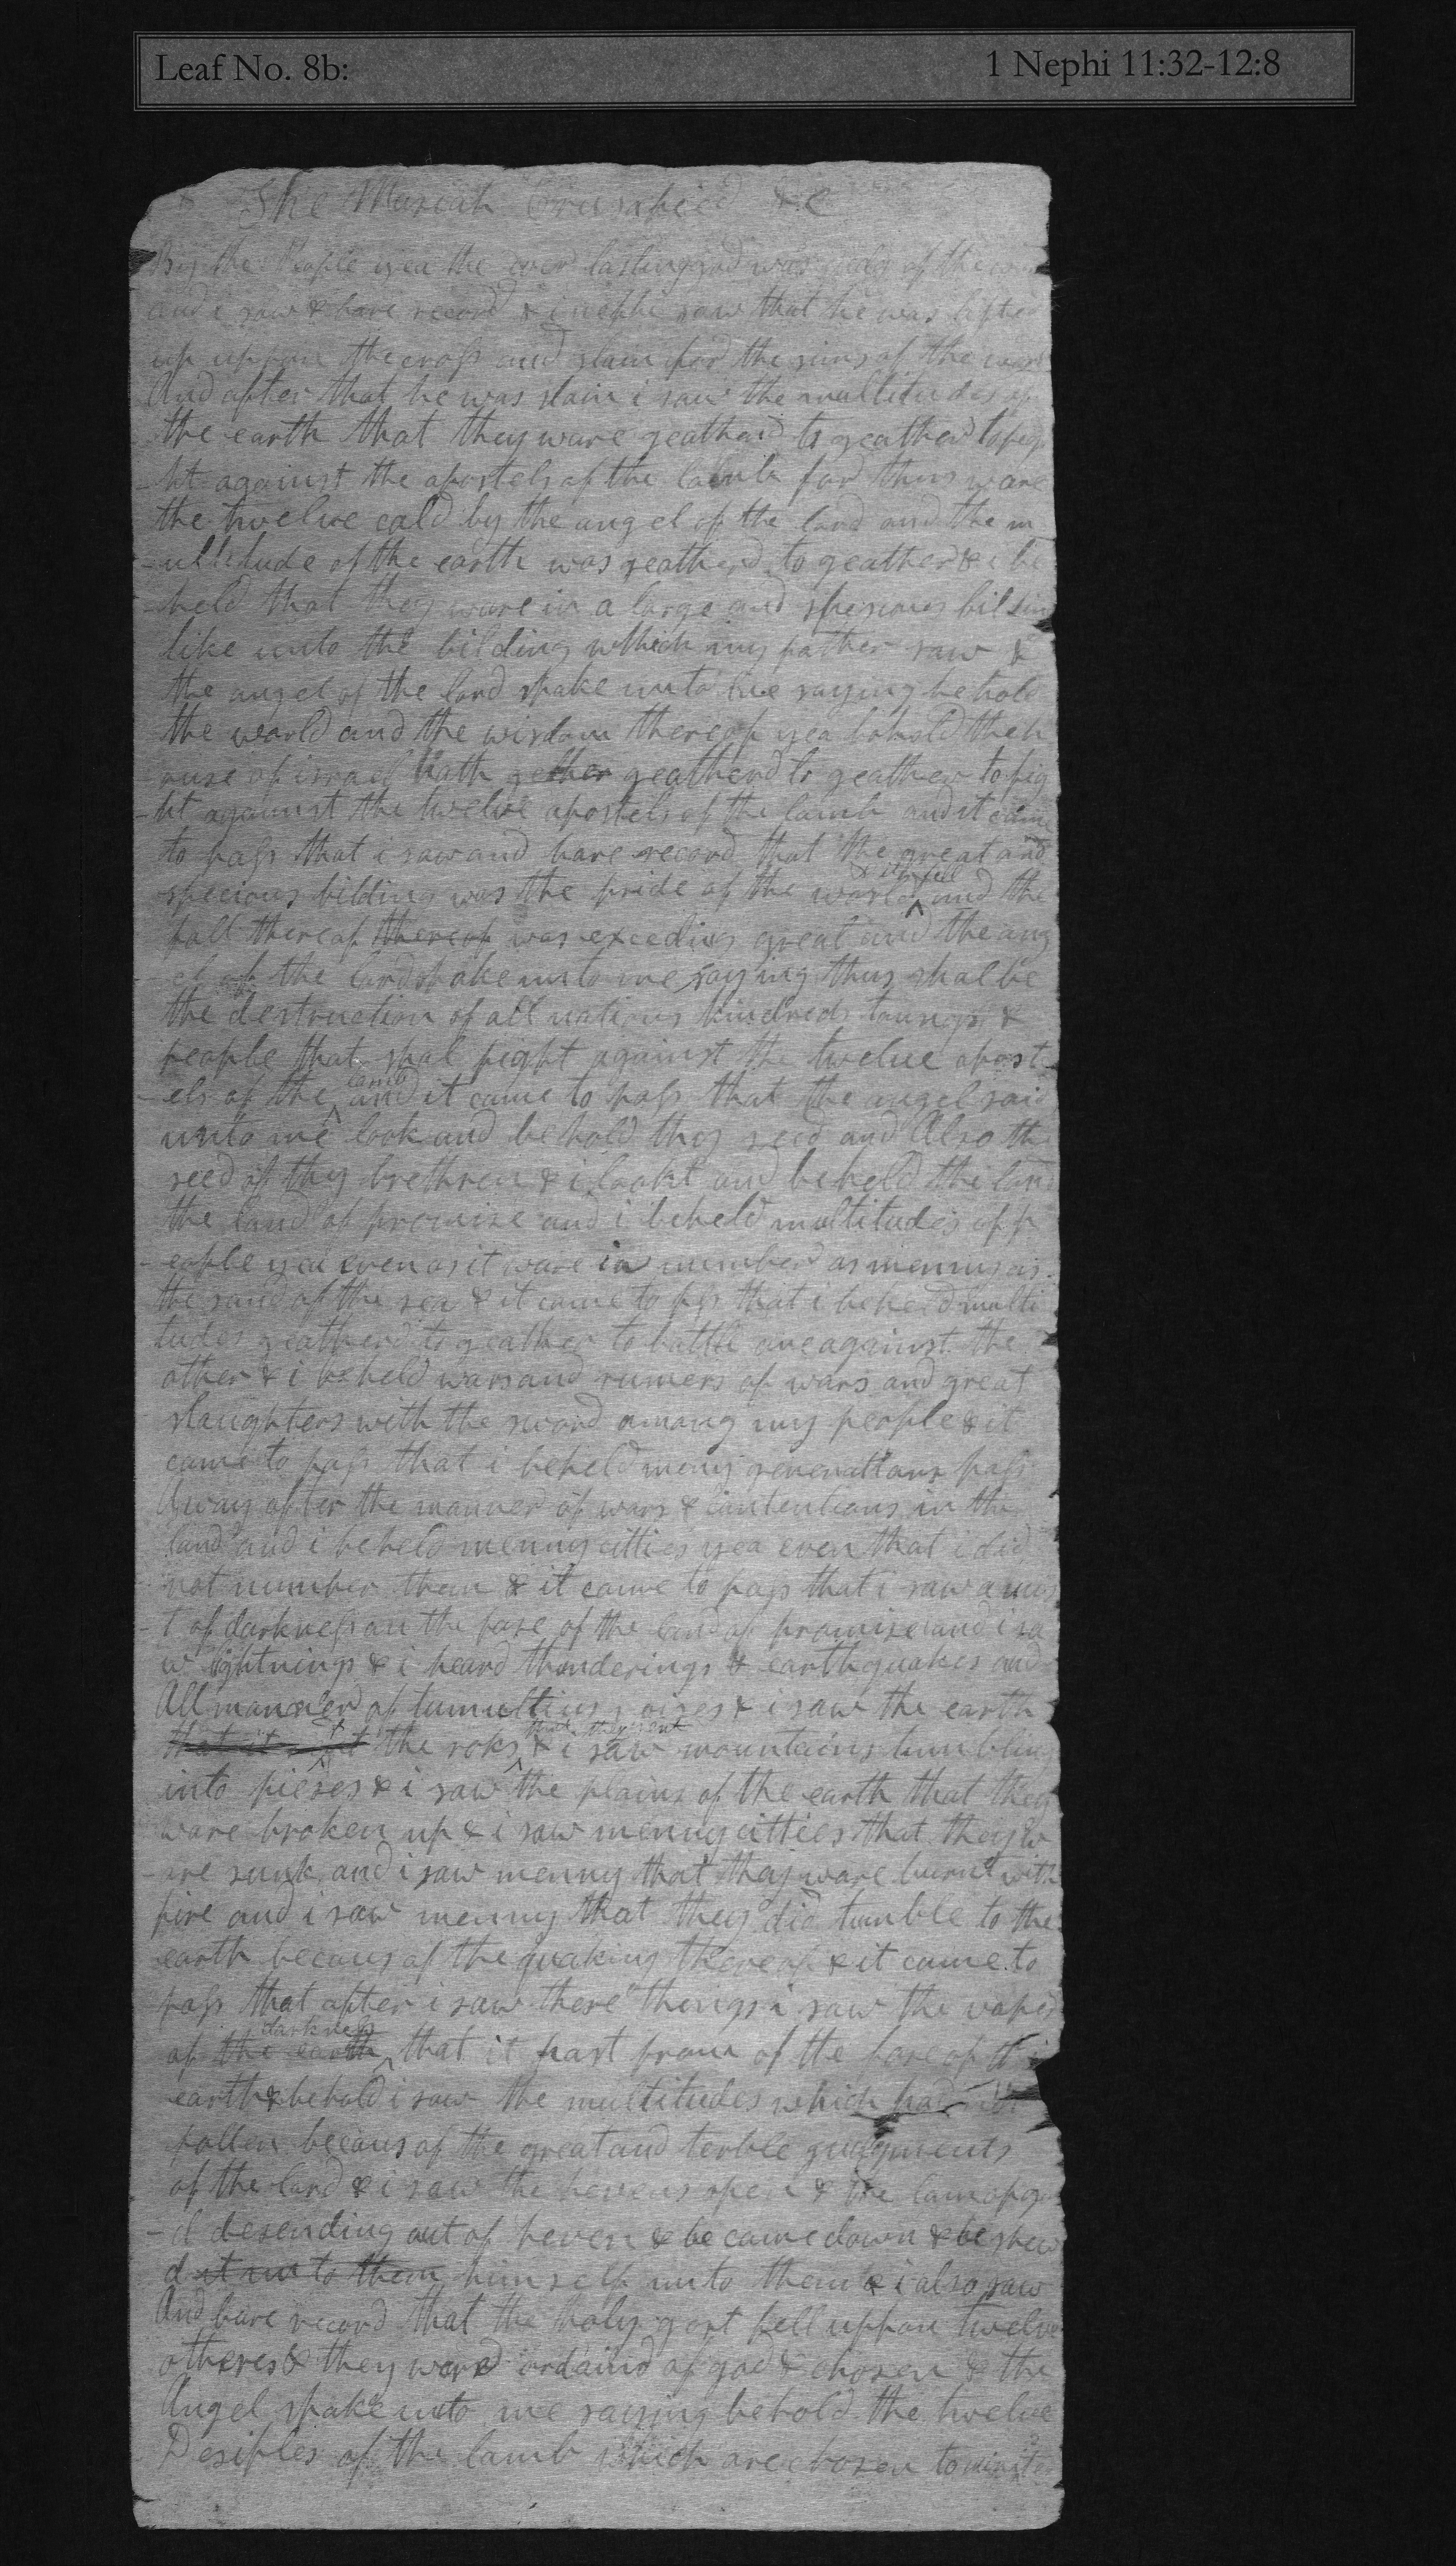 Leaf No. 8b: 1 Nephi 11:32-12:8
The Mesiah Crusafied &c
By the People yea the ever lasting god was judg of the
and i saw & bare record & i nephi saw that he was lifted
up uppon the cross and slain for the sins of the
And after that he was slain i saw the multitudes of
the earth that they ware geatherd to geather to fig
-ht against the apostels of the lamb for thus ware
the twelve cald by the angel of the lord and the m
-ultitude of the earth was geatherd to geather & i be
-held that they ware in a large and spesious bildin
like unto the bilding which my father saw &
the angel of the lord spake unto me saying behold
the world and the wisdom thereof yea behold the h
-ouse of israel hath gether geatherd to geather to fig
-ht against the twelve apostels of the lamb and it came
to pass that i saw and bare record that the great and
specious bilding was the pride of the world it fell and the
fall thereof thereof was exceding great and the ang
-el of the lord spake unto me saying thus shal be
the destruction of all nations kindreds toungs &
people that shal fight against the twelve apost
-els of the lamb and it came to pass that the angel said
unto me look and behold thy seed and Also the
seed of thy brethren & i lookt and beheld the land
the land of promise and i beheld multitudes of p
-eople yea even as it ware in number as menny as
the sand of the sea & it came to pass that i beheld multi
tudes geatherd to geather to battle one against the
other & i beheld wars and rumers of wars and great
slaughters with the sword among my people & it
came to pass that i beheld meny generations pass
Away after the manner of wars & contentions in the
land and i beheld menny citties yea even that i did
not number them & it came to pass that i saw a mis
-t of darkness on the fase of the land of promise and i sa
w lightnings & i heard thunderings & earthquakes and
All manner of tumultius noises & i saw the earth
that it the roks that they rent & i saw mountains tumbling
into pieses & i saw the plains of the earth that they
ware broken up & i saw menny citties that they w
-are sunk and i saw menny that they ware burnt with
fire and i saw menny that they did tumble to the
earth becaus of the quaking thereof & it came to
pass that after i saw these things i saw the vaper
of the earth darkness that it past from of the fase of the
earth & behold i saw the multitudes which had not
fallen becaus of the great and terble judgments
of the lord & i saw the hevens open & the lam of go
-d desending out of heven & he came down & he shew
d it unto them himself unto them & i also saw
And bare record that the holy gost fell uppon twelve
otheres & they ware ordaind of god & chosen & the
Angel spake unto me saying behold the twelve
Desiples of the lamb which are chosen to